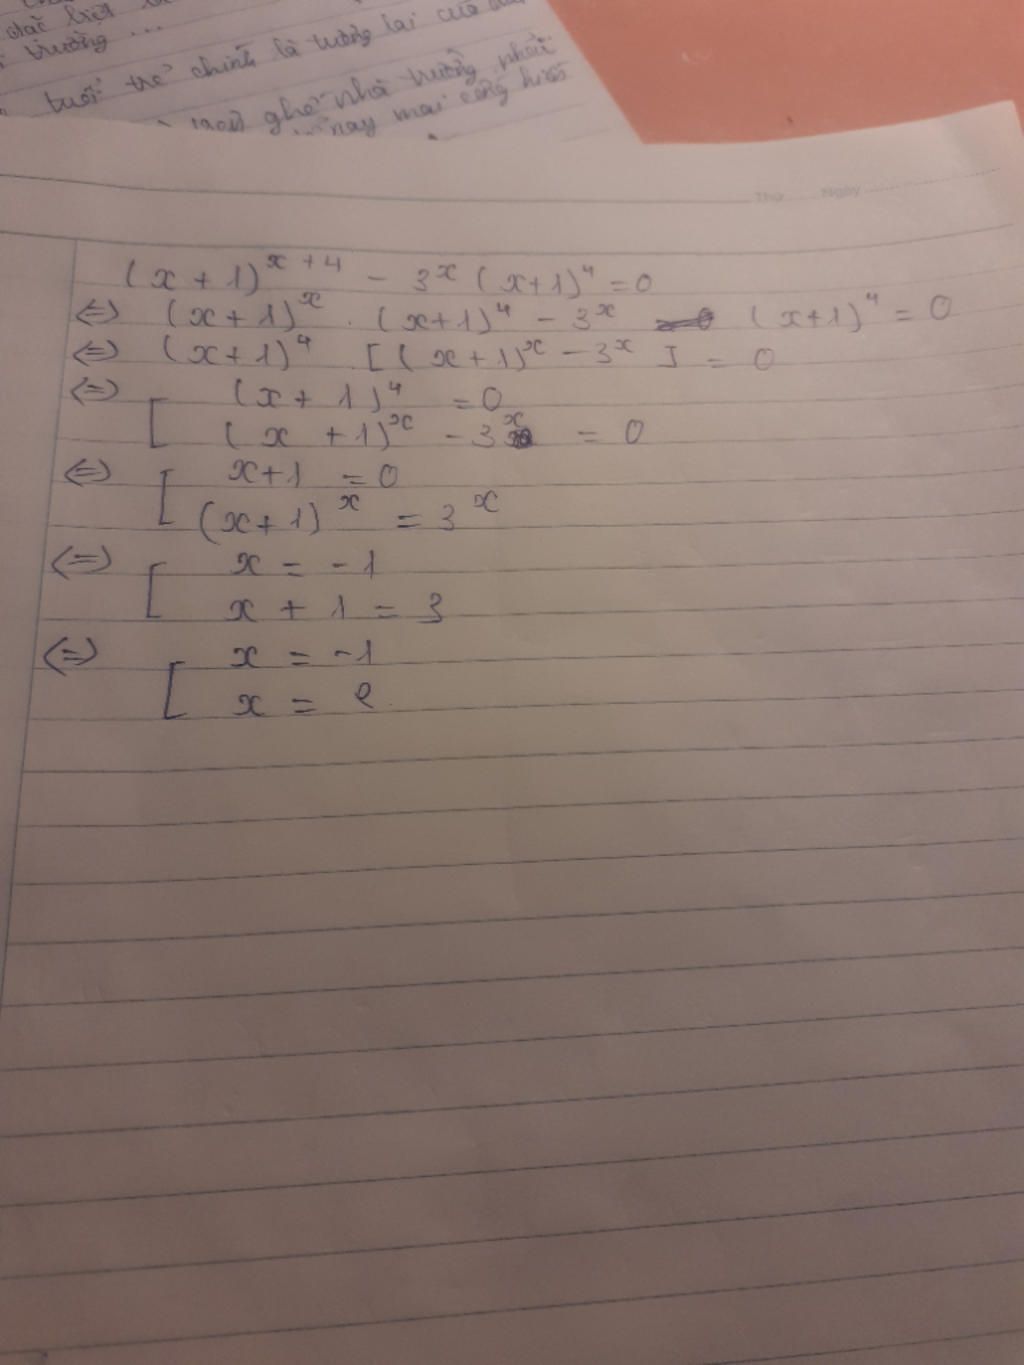 đặc biệt
trường ...
tuổi trẻ chính là tương lai của
ghế nhà trường phải
nay mai cống hiến
Thứ ........ Ngày ........................
(x + 1)^{x + 4} - 3^x (x+1)^4 = 0
⇔ (x+1)^x . (x+1)^4 - 3^x (x+1)^4 = 0
⇔ (x+1)^4 . [(x+1)^x - 3^x] = 0
⇔ [ (x + 1)^4 = 0
(x + 1)^x - 3^x = 0
⇔ [ x+1 = 0
(x+1)^x = 3^x
⇔ [ x = -1
x + 1 = 3
⇔ [ x = -1
x = 2